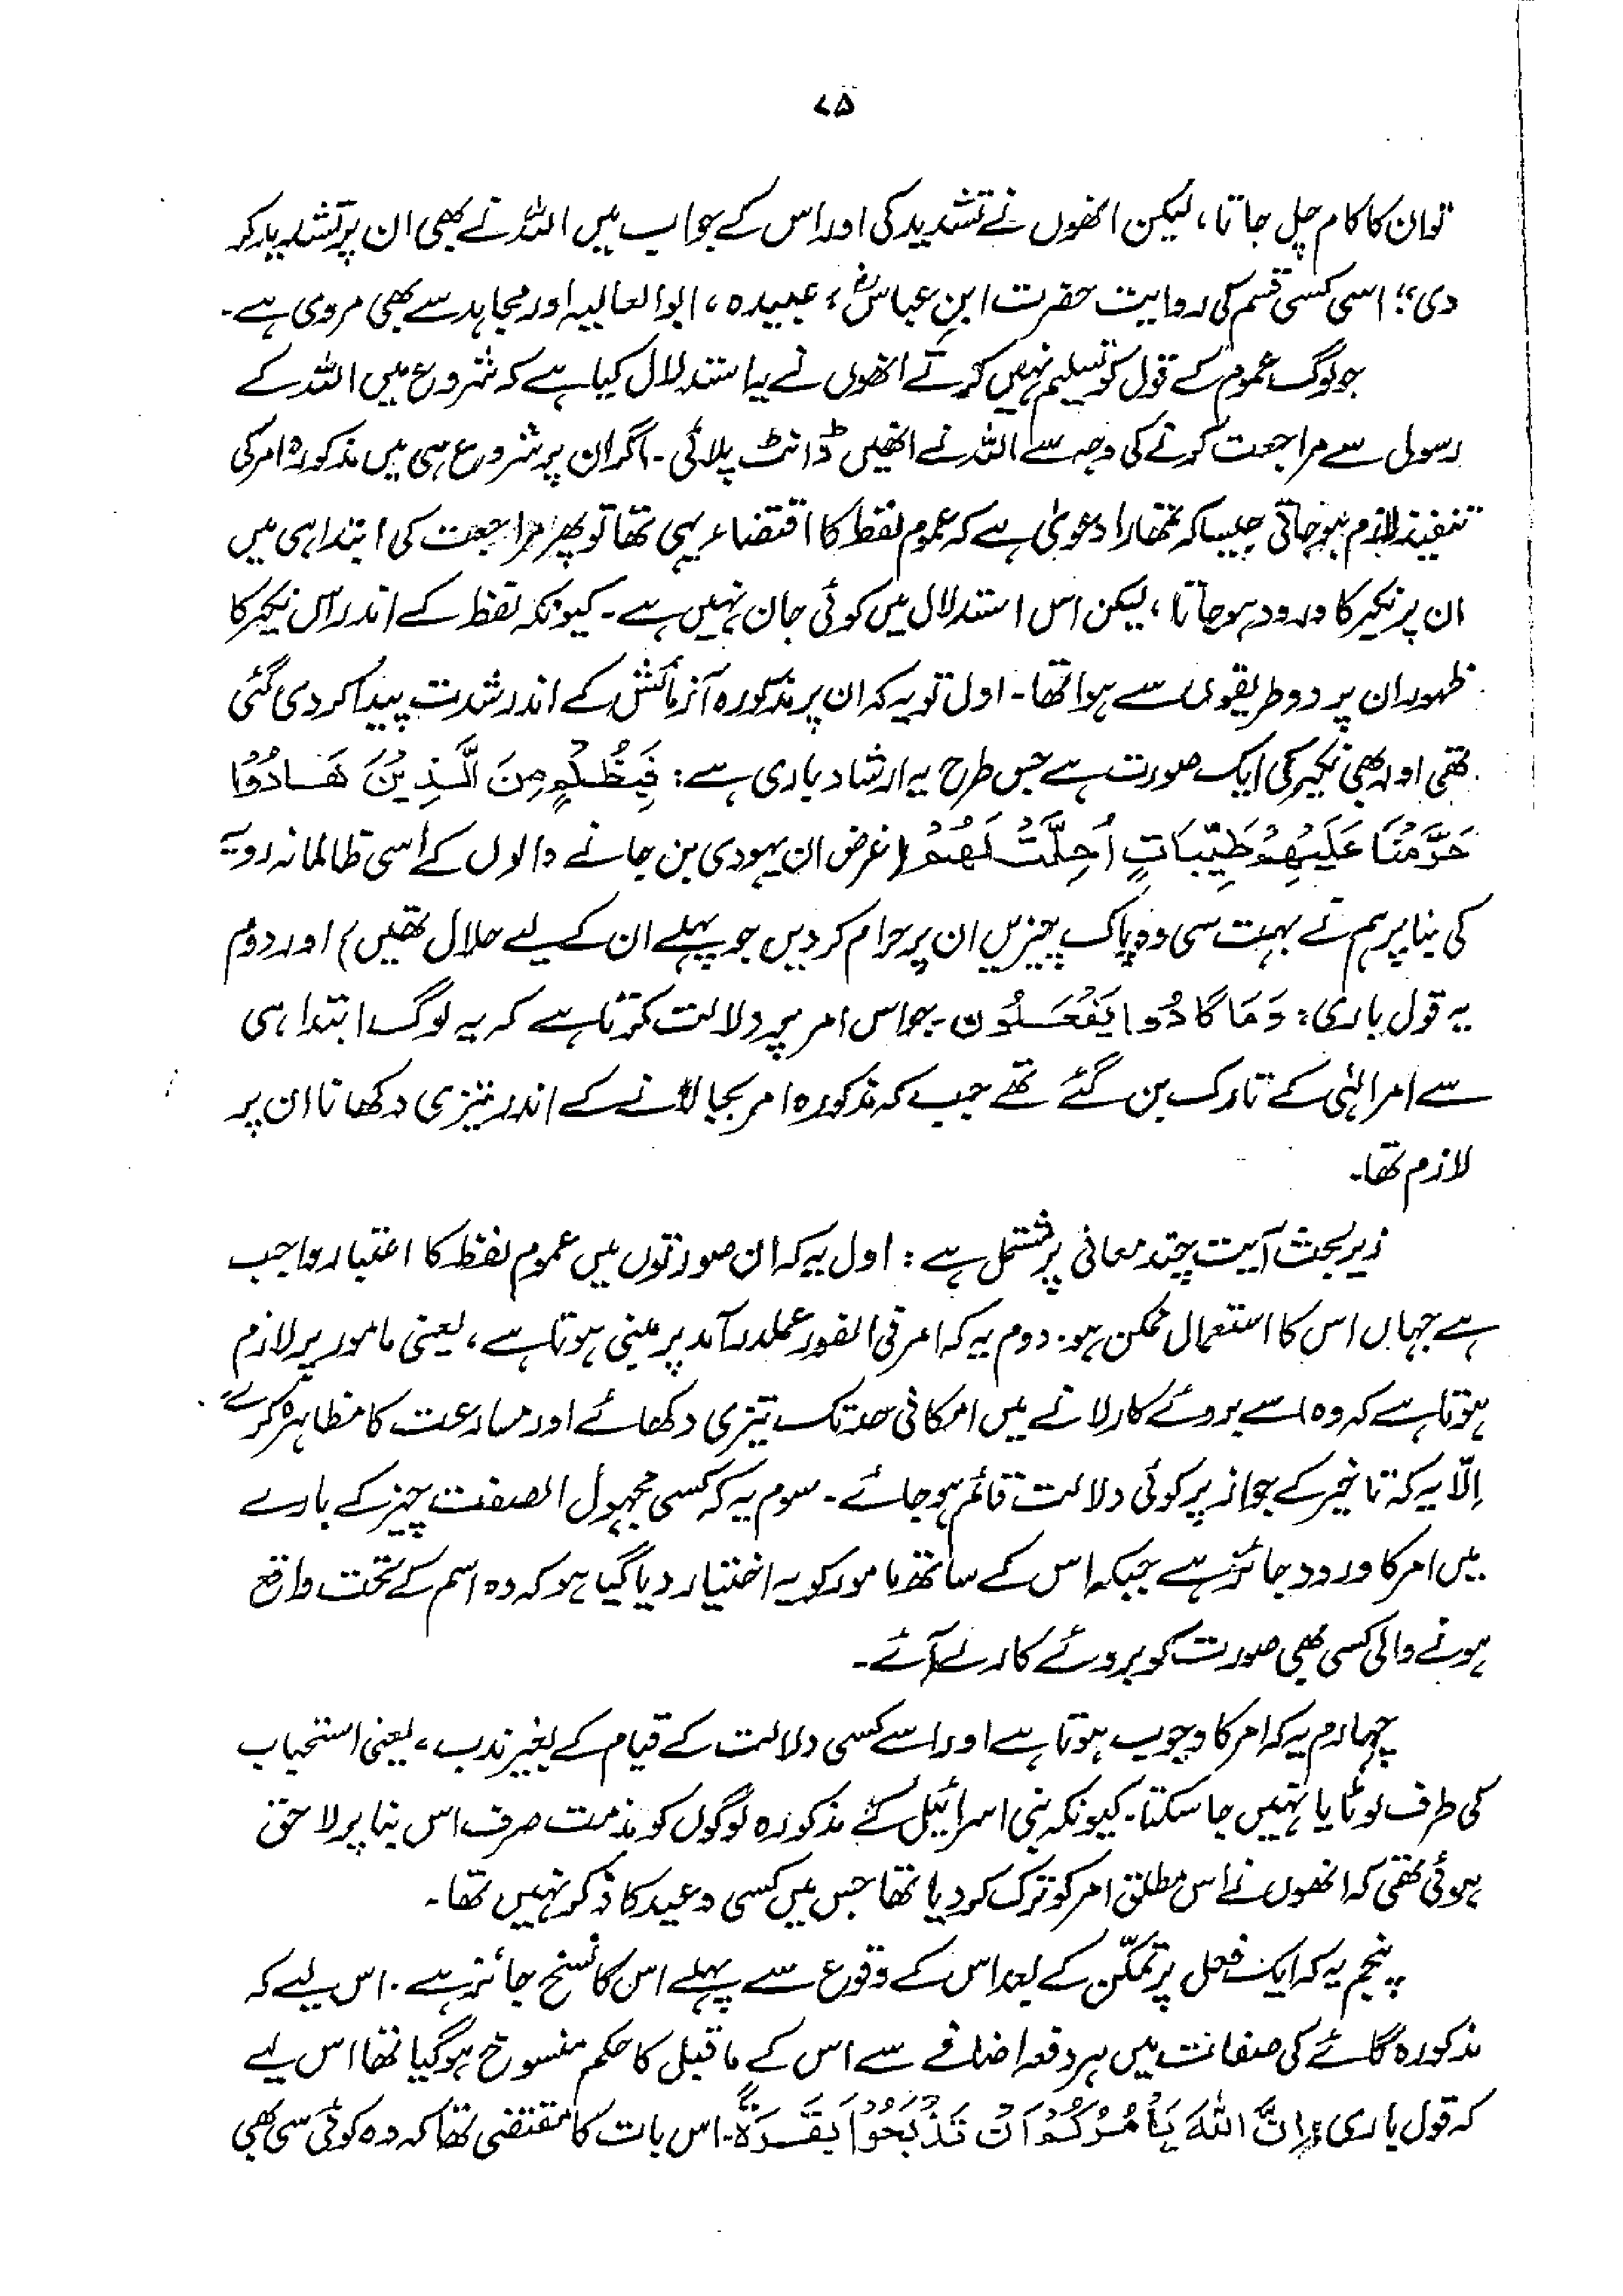 ۷۵
توان کا کام چل جاتا، لیکن انھوں نے تشدید کی اور اس کے جواب میں اللہ نے بھی ان پر تشدید کر
دی"؛ اسی کسی قسم کی روایت حضرت ابنِ عباسؓ، عبیدہ، ابوالعالیہ اور مجاہد سے بھی مروی ہے۔
جو لوگ عموم کے قول کو تسلیم نہیں کرتے انھوں نے یہ استدلال کیا ہے کہ شروع میں اللہ کے
رسول سے مراجعت کرنے کی وجہ سے اللہ نے انھیں ڈانٹ پلائی۔ اگر ان پر شروع ہی میں مذکورہ امر کی
تنفیذ لازم ہو جاتی جیسا کہ تمھارا دعویٰ ہے کہ عموم لفظ کا اقتضاء یہی تھا تو پھر مراجعت کی ابتدا ہی میں
ان پر نکیر کا ورود ہو جاتا، لیکن اس استدلال میں کوئی جان نہیں ہے۔ کیونکہ لفظ کے اندر اس نکیر کا
ظہور ان پر دو طریقوں سے ہوا تھا۔ اول تو یہ کہ ان پر مذکورہ آزمائش کے اندر شدت پیدا کر دی گئی
تھی اور یہ بھی نکیر کی ایک صورت ہے جس طرح یہ ارشاد باری ہے: فَبِظُلْمٍ مِنَ الَّذِيْنَ هَادُوْا
حَرَّمْنَا عَلَيْهِمْ طَيِّبَاتٍ اُحِلَّتْ لَهُمْ (غرض ان یہودی بن جانے والوں کے اسی ظالمانہ رویہ
کی بنا پر ہم نے بہت سی وہ پاک چیزیں ان پر حرام کر دیں جو پہلے ان کے لیے حلال تھیں) اور دوم
یہ قول باری: وَمَا كَادُوا يَفْعَلُون۔ جو اس امر پر دلالت کرتا ہے کہ یہ لوگ ابتدا ہی
سے امر الٰہی کے تارک بن گئے تھے جب کہ مذکورہ امر بجا لانے کے اندر تیزی دکھانا ان پر
لازم تھا۔
زیر بحث آیت چند معانی پر مشتمل ہے: اول یہ کہ ان صورتوں میں عموم لفظ کا اعتبار واجب
ہے جہاں اس کا استعمال ممکن ہو۔ دوم یہ کہ امر فی الفور عملدرآمد پر مبنی ہوتا ہے، یعنی مامور پر لازم
ہوتا ہے کہ وہ اسے بروئے کار لانے میں امکانی حد تک تیزی دکھائے اور مسارعت کا مظاہرہ کرے۔
اِلّا یہ کہ تاخیر کے جواز پر کوئی دلالت قائم ہو جائے۔ سوم یہ کہ کسی مجہول الصفت چیز کے بارے
میں امر کا ورود جائز ہے جبکہ اس کے ساتھ مامور کو یہ اختیار دیا گیا ہو کہ وہ اسم کے تحت واقع
ہونے والی کسی بھی صورت کو بروئے کار لے آئے۔
چہارم یہ کہ امر کا وجوب ہوتا ہے اور اسے کسی دلالت کے قیام کے بغیر ندب، یعنی استحباب
کی طرف لوٹایا نہیں جا سکتا۔ کیونکہ بنی اسرائیل کے مذکورہ لوگوں کو مذمت صرف اس بنا پر لاحق
ہوئی تھی کہ انھوں نے اس مطلق امر کو ترک کر دیا تھا جس میں کسی وعید کا ذکر نہیں تھا۔
پنجم یہ کہ ایک فعل پر تمکّن کے بعد اس کے وقوع سے پہلے اس کا نسخ جائز ہے۔ اس لیے کہ
مذکورہ گائے کی صفات میں ہر دفعہ اضافے سے اس کے ماقبل کا حکم منسوخ ہو گیا تھا اس لیے
کہ قول باری: اِنَّ اللّٰهَ يَأْمُرُكُمْ اَنْ تَذْبَحُوْا بَقَرَةً۔ اس بات کا مقتضی تھا کہ وہ کوئی سی بھی